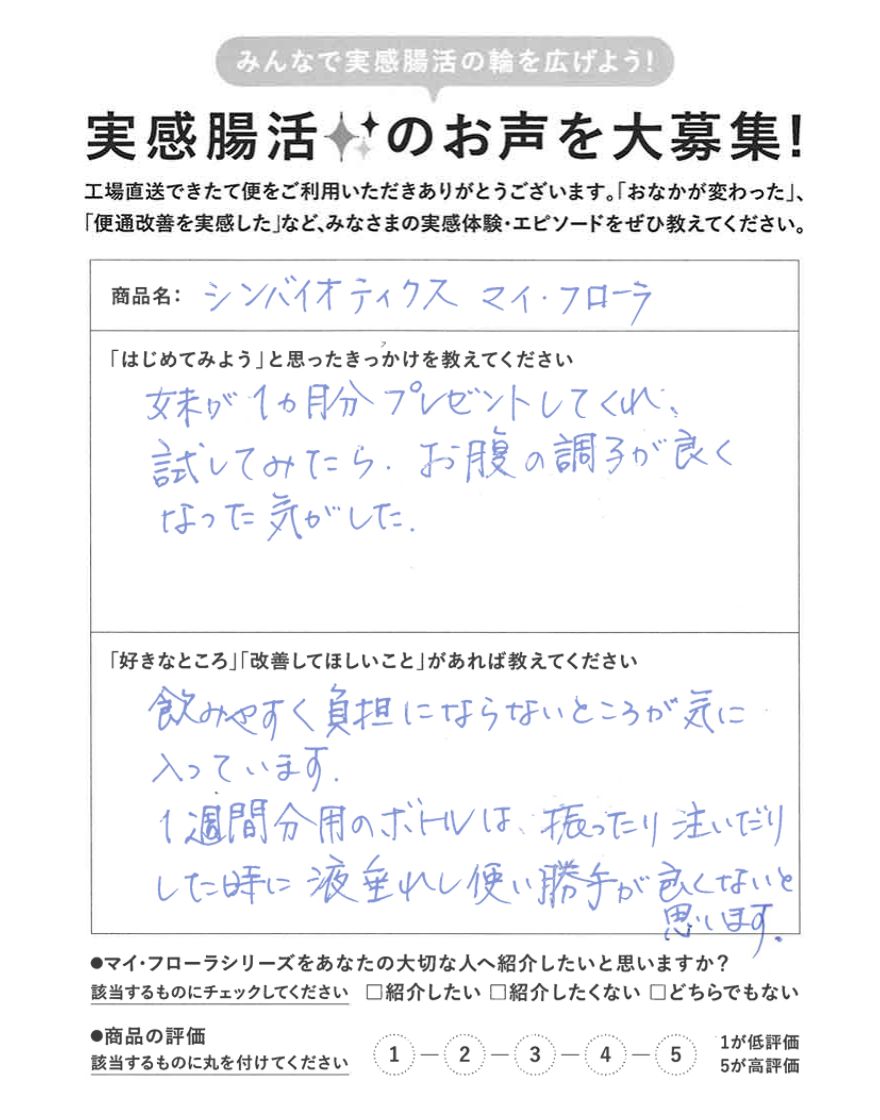 みんなで実感腸活の輪を広げよう!
実感腸活のお声を大募集!
工場直送できたて便をご利用いただきありがとうございます。「おなかが変わった」、
「便通改善を実感した」など、みなさまの実感体験・エピソードをぜひ教えてください。
商品名: シンバイオティクス マイ・フローラ
「はじめてみよう」と思ったきっかけを教えてください
妹が1ヵ月分プレゼントしてくれ、
試してみたら、お腹の調子が良く
なった気がした.
「好きなところ」「改善してほしいこと」があれば教えてください
飲みやすく負担にならないところが気に
入っています.
1週間分用のボトルは、振ったり注いだり
した時に液垂れし使い勝手が良くないと
思います.
●マイ・フローラシリーズをあなたの大切な人へ紹介したいと思いますか?
該当するものにチェックしてください □紹介したい □紹介したくない □どちらでもない
●商品の評価
該当するものに丸を付けてください 1 — 2 — 3 — 4 — 5
1が低評価
5が高評価